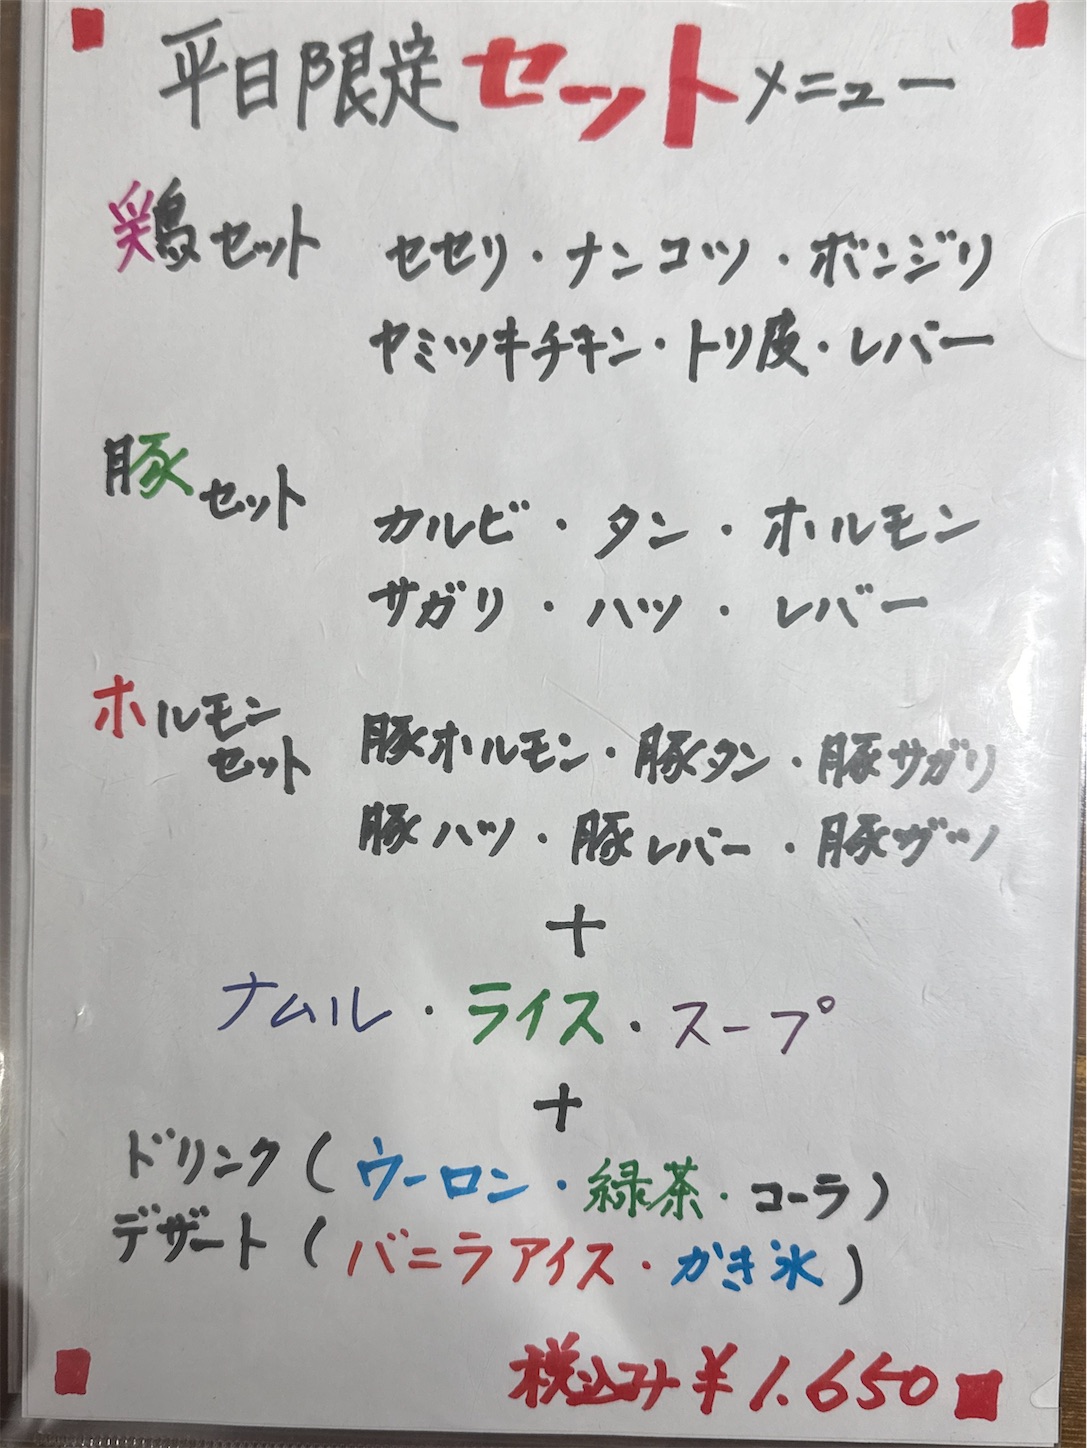 平日限定セットメニュー
鶏セット セセリ・ナンコツ・ボンジリ
ヤミツキチキン・トリ皮・レバー
豚セット
カルビ・タン・ホルモン
サガリ・ハツ・レバー
ホルモン
セット
豚ホルモン・豚タン・豚サガリ
豚ハツ・豚レバー・豚ガツ
+
ナムル・ライス・スープ
+
ドリンク(ウーロン・緑茶・コーラ)
デザート(バニラアイス・かき氷)
税込み¥1.650